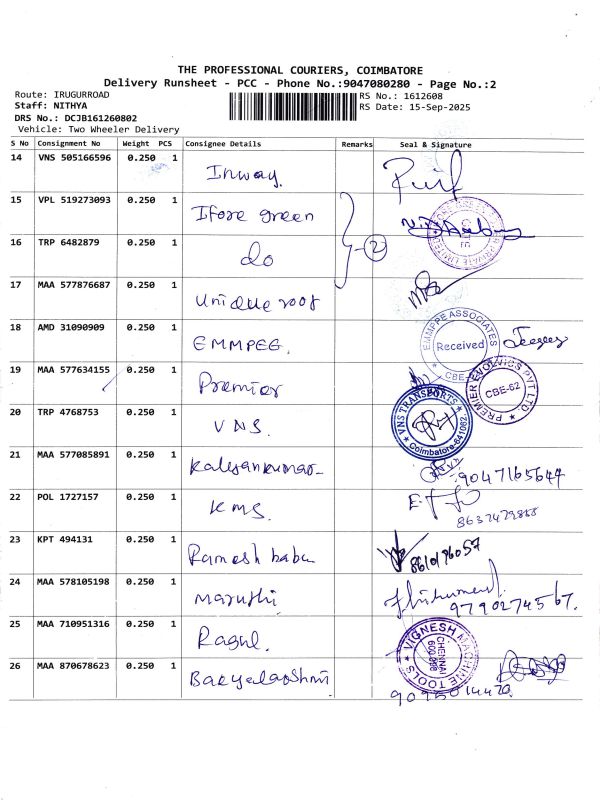 THE PROFESSIONAL COURIERS, COIMBATORE
Delivery Runsheet - PCC - Phone No.:9047080280 - Page No.:2
Route: IRUGURROAD RS No.: 1612608
Staff: NITHYA RS Date: 15-Sep-2025
DRS No.: DCJB161260802
Vehicle: Two Wheeler Delivery
S No Consignment No Weight PCS Consignee Details Remarks Seal & Signature
14 VNS 505166596 0.250 1 Inway.
15 VPL 519273093 0.250 1 Ifore green
16 TRP 6482879 0.250 1 do 2
17 MAA 577876687 0.250 1 Unique roof
18 AMD 31090909 0.250 1 EMMPEE. EMMPPE ASSOCIATES Received CBE
19 MAA 577634155 0.250 1 Premier PREMIER EVOLVICS PVT LTD. CBE-62
20 TRP 4768753 0.250 1 VNS. VNS TRANSPORTS Coimbatore-641062
21 MAA 577085891 0.250 1 Kalyankumar 9047165647
22 POL 1727157 0.250 1 KMS.
23 KPT 494131 0.250 1 Ramesh babu
24 MAA 578105198 0.250 1 Maruthi 9790274567.
25 MAA 710951316 0.250 1 Ragul. VIGNESH MACHINE TOOLS CHENNAI
26 MAA 870678623 0.250 1